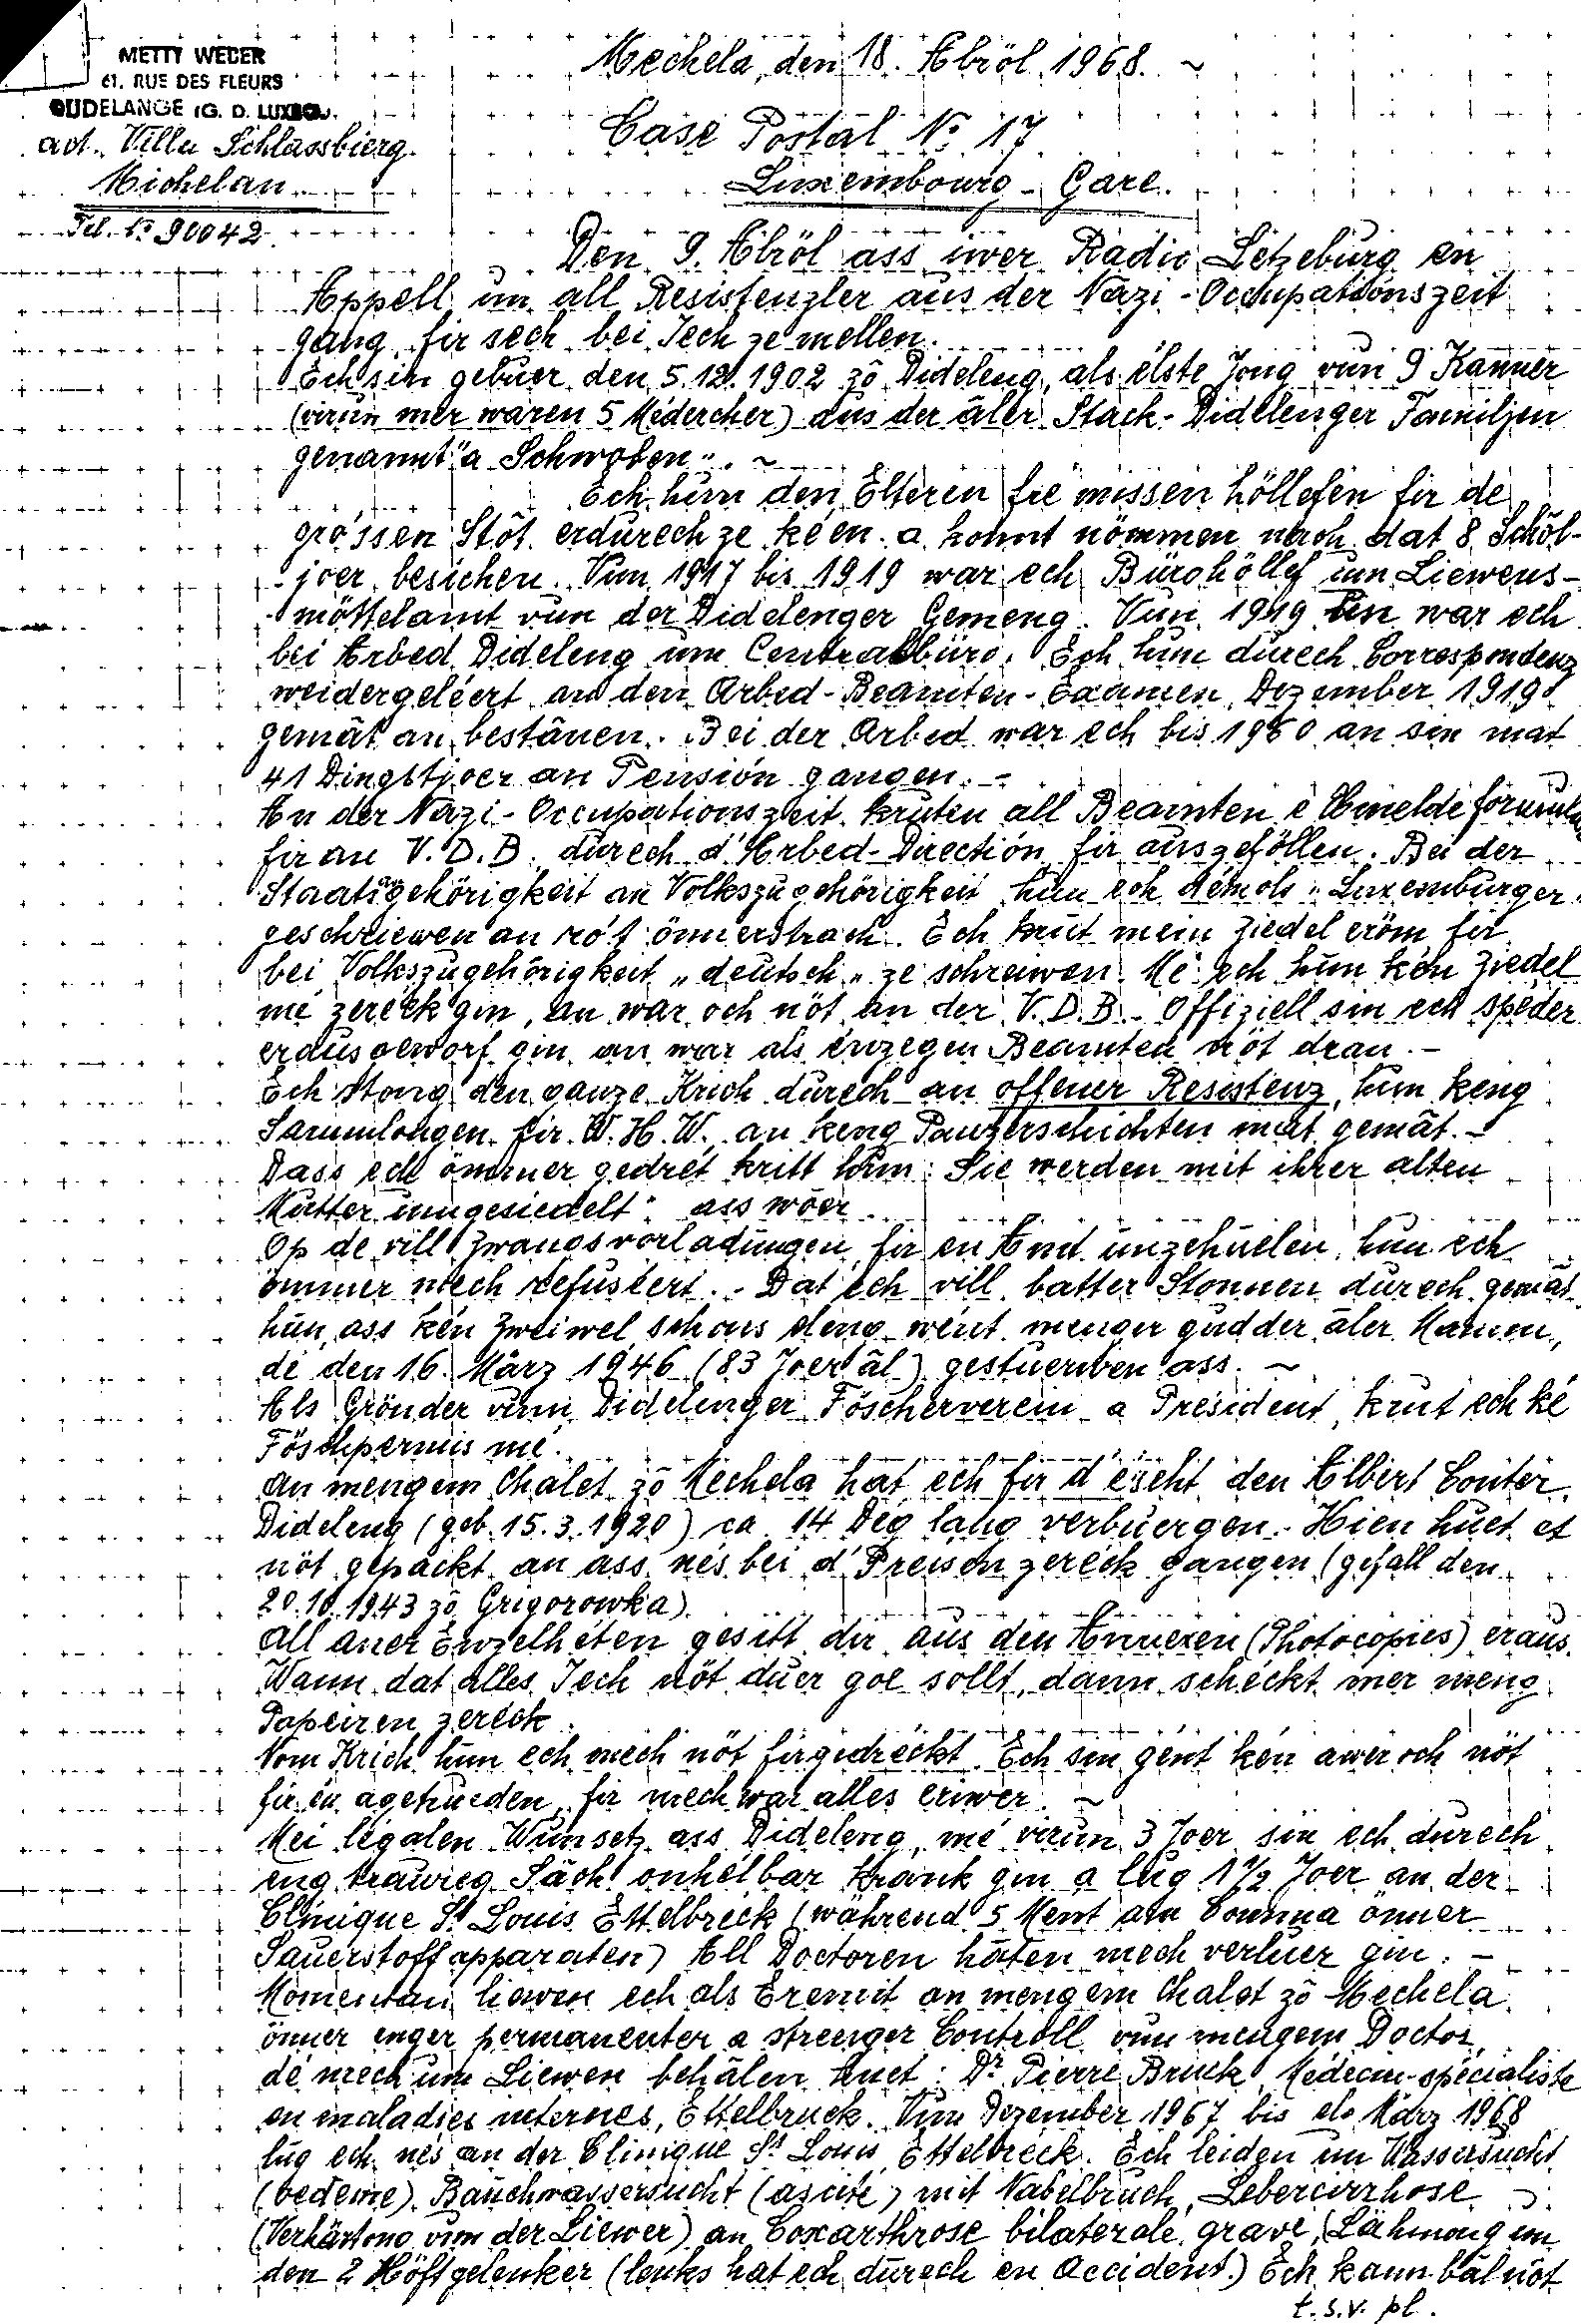 METTY WEBER
61. RUE DES FLEURS
DUDELANGE (G. D. LUXBG).
act. Villa Schlassbierg
Michelau
Tel. No 90042.
Mechela, den 18. Abröl 1968. ~
Case Postal No 17
Luxembourg - Gare.
Den 9. Abröl ass iwer Radio Letzeburg en
Appell un all Resistenzler aus der Nazi-Occupationszeit
gang, fir sech bei Iech ze mellen.
Ech sin gebuer den 5.12.1902 zô Dideleng, als elste Jong vun 9 Kanner
(virun mer waren 5 Médercher) aus der âler Stack-Didelenger Familjen
genannt "a Schwoben". ~
Ech hun den Elteren fré missen höllefen fir de
gróssen Stôt erdurech ze kéen a konnt nömmen nach dat 8. Schôl-
joer besichen. Vun 1917 bis 1919 war ech Bürohöllef um Liewens-
möttelamt vun der Didelenger Gemeng. Vun 1919 un war ech
bei Arbed Dideleng um Centralbüro. Ech hun durech Correspondenz
weidergeléert an den Arbed-Beamten-Examen Dezember 1919
gemât an bestânen. Bei der Arbed war ech bis 1960 an sin mat
41 Dingstjoer an Pensión gangen. -
An der Nazi-Occupationszeit kruten all Beamten e Umeldeformular
fir an V.D.B. durech d'Arbed-Direction fir auszeföllen. Bei der
Staatsangehörigkeit an Volkszugehörigkeit hun ech démols "Luxemburger"
geschriewen an rót önnerstrach. Ech krut mein Ziedel eröm fir
bei Volkszugehörigkeit "deutsch" ze schreiwen. Mé ech hun kén Ziedel
mé zereck gin, an war och nöt an der V.D.B. Offiziell sin ech spéder
erausgeworf gin an war als énzegen Beamten nöt dran. -
Ech stong den ganze Krich durech an offener Resistenz, hun keng
Sammlongen fir W.H.W. an keng Panzerschichten mat gemât. -
Dass ech ömmer gedrét kritt hun: Sie werden mit ihrer alten
Mutter umgesiedelt" ass wöer.
Op de vill Zwangsvorladungen, fir en Amt unzehuelen, hun ech
ömmer mech refuséert. - Dat ech vill batter Stonnen durech gemât
hun, ass kén Zweiwel, schons deng wént menger gudder âler Mamm,
dé den 16. März 1946 (83 Joer âl) gestuerwen ass. ~
Als Grönder vum Didelenger Föscherverein a President, krut ech ké
Föschpermis mé.
An mengem Chalet zô Mechela hat ech fir d'éscht den Albert Conter,
Dideleng (geb. 15.3.1920) ca 14 Deg lang verbuergen. Hien huet et
nöt gepackt an ass nés bei d'Preisen zereck gangen (gefall den
20.10.1943 zô Grigorowka).
All aner Enzelhéten gesitt dir aus den Annexen (Photocopies) eraus.
Wann dat alles Iech nöt duer goe sollt, dann schéckt mer meng
Papeiren zereck.
Vom Krich hun ech mech nöt firgedréckt. Ech sin gént kén awer och nöt
fir én agetrueden, fir mech war alles eriwer. ~
Mei legalen Wunsetz ass Dideleng, mé virun 3 Joer sin ech durech
eng traureg Sâch onhélbar krank gin a lug 1 1/2 Joer an der
Clinique St Louis Ettelbreck (während 5 Ment am Comma önner
Sauerstoffapparaten) All Doctoren hâten mech verluer gin. -
Momentan liewen ech als Eremit an mengem Chalet zô Mechela
önner enger permanenter a strenger Controll vun mengem Doctor,
dé mech um Liewen behâlen huet: Dr Pierre Bruck, Médecin-spécialiste
en maladies internes, Ettelbruck. Vun Dezember 1967 bis März 1968
lug ech nés an der Clinique St Louis Ettelbreck. Ech leiden un Wassersucht
(oedeme), Bauchwassersucht (ascite) mit Nabelbruch, Lebercirrhose
(Verhärtong vun der Liewer) an Coxarthrose bilaterale grave, Lähmong un
den 2 Höftgelenker (lenks hat ech durech en Accident.) Ech kann bâl nöt
t.s.v. pl.